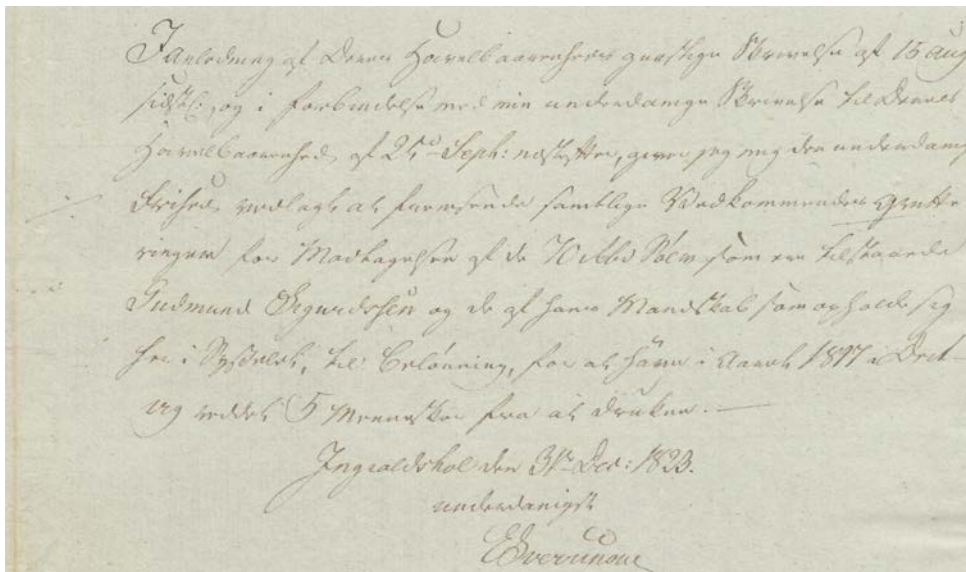 I Anledning af Deres Høivelbaarenheds gunstige Skrivelse af 15 Aug
sidstl: og i Forbindelse med min underdanige Skrivelse til Deres
Høivelbaarenhed af 25d Septbr: næstefter, giver jeg mig den underdanige
Frihed vedlagt at fremsende samtlige Vedkommendes Qvitte
ringer for Modtagelsen af de Rbd Sølv, som ere tilstaaede
Gudmund Sigurdssen og de af hans Mandskab som opholde sig
her i Sysselet, til Belønning, for at have i Aaret 1817 i Drit-
vig reddet 5 Mennesker fra at drukne. —
Ingialdshol den 31te Dec: 1823.
underdanigst